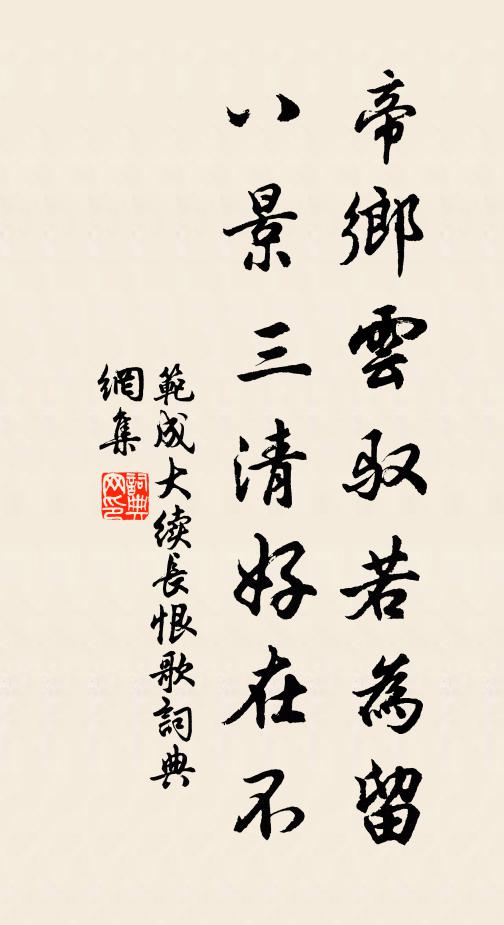 帝鄉雲馭若為留
八景三清好在不
範成大续長恨歌詞典
網集
詞典網印